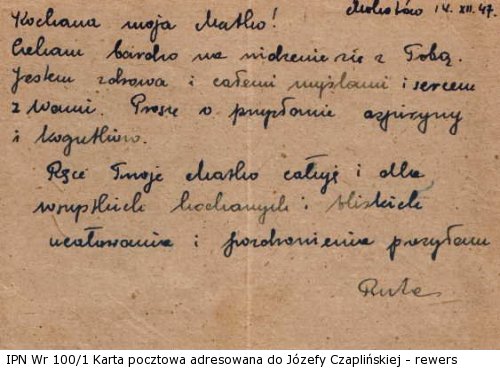 Mokotów 14. XII. 47.
Kochana moja Matko!
Czekam bardzo na widzenie się z Tobą.
Jestem zdrowa i całemi myślami i sercem
z Wami. Proszę o przysłanie aspiryny
i kogutków.
Ręce Twoje Matko całuję i dla
wszystkich kochanych i bliskich
ucałowania i pozdrowienia przesyłam
IPN Wr 100/1 Karta pocztowa adresowana do Józefy Czaplińskiej - rewers